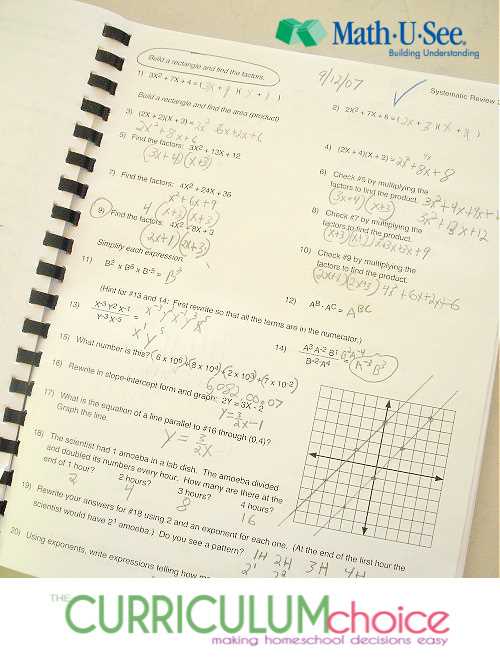 Math·U·See®
Building Understanding
9/12/07
Systematic Review
Build a rectangle and find the factors.
1) 3X² + 7X + 4 = (3X + 4)(X + 1)
2) 2X² + 7X + 6 =
Build a rectangle and find the area (product)
3) (2X + 2)(X + 3) = 2X² 6X+2X+6
2X² + 8X + 6
4) (2X + 4)(X + 2) =
4X
2X² + 8X + 8
5) Find the factors: 3X² + 13X + 12
(3X+4)(X+3)
6) Check #5 by multiplying the
factors to find the product.
(3X+4)(X+3)
3X² + 13X + 12
7) Find the factors: 4X² + 24X + 36
X² + 6X + 9
4 (X+3)(X+3)
8) Check #7 by multiplying the
factors to find the product.
9) Find the factors: 4X² + 8X + 3
(2X+1)(2X+3)
10) Check #9 by multiplying the
factors to find the product.
(2X+1)(2X+3)
Simplify each expression.
11) B² x B⁶ x B⁻⁵ = B³
12) Aᴮ · Aᶜ =
(Hint for #13 and 14: First rewrite so that all the terms are in the numerator.)
13)
14)
15) What number is this? (6 x 10⁵) + (8 x 10⁴) + (2 x 10³) + (7 x 10⁻²)
16) Rewrite in slope-intercept form and graph: 2Y = 3X - 2
Y = 3/2X - 1
17) What is the equation of a line parallel to #16 through (0,4)?
Graph the line.
18) The scientist had 1 amoeba in a lab dish. The amoeba divided
and doubled its numbers every hour. How many are there at the
end of 1 hour? 2 hours? 3 hours? 4 hours?
2 4 8 16
19) Rewrite your answers for #18 using 2 and an exponent for each one. (At the end of the first hour the
scientist would have 2¹ amoeba.) Do you see a pattern?
1H 2H 3H 4H
2¹ 2²
20) Using exponents, write expressions telling how
THE
CURRICULUM choice
making homeschool decisions easy